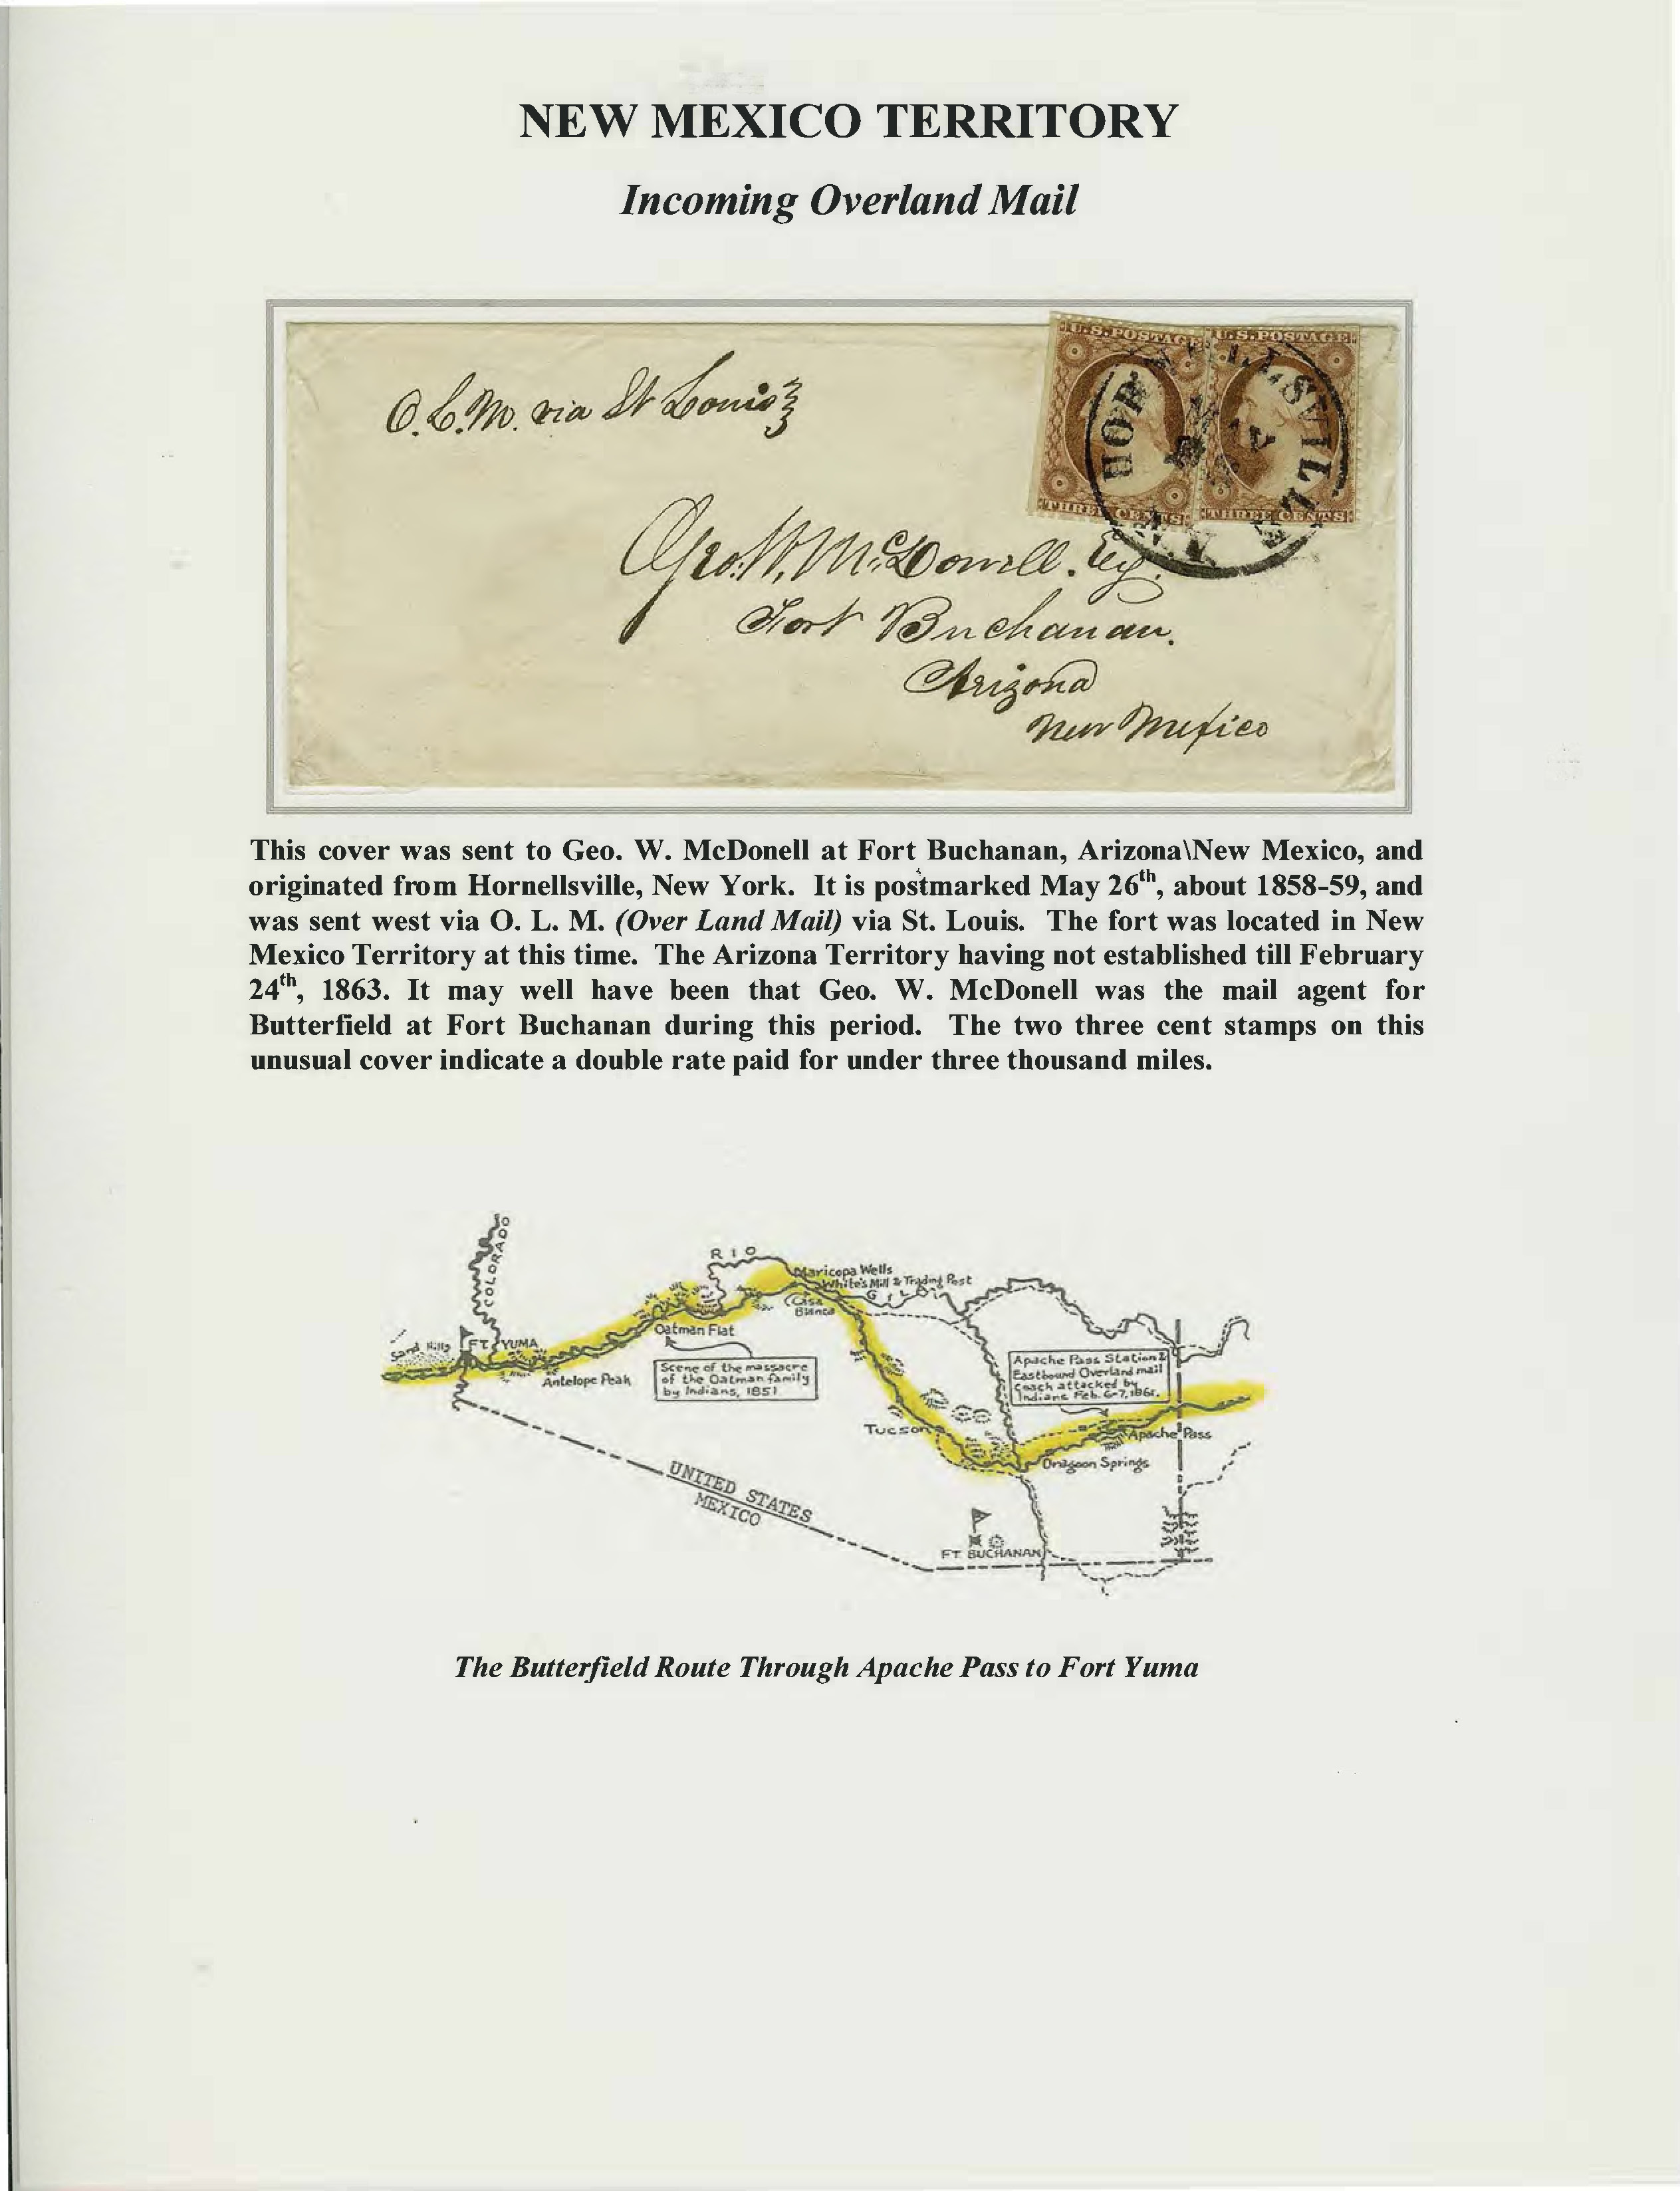 NEW MEXICO TERRITORY
Incoming Overland Mail
O.L.M. via St Louis
U.S. POSTAGE
U.S. POSTAGE
THREE CENTS
THREE CENTS
HORNELLSVILLE
N.Y.
Geo. W. McDowell. Esq.
Fort Buchanan.
Arizona
New Mexico
This cover was sent to Geo. W. McDonell at Fort Buchanan, Arizona\New Mexico, and
originated from Hornellsville, New York. It is postmarked May 26th, about 1858-59, and
was sent west via O. L. M. (Over Land Mail) via St. Louis. The fort was located in New
Mexico Territory at this time. The Arizona Territory having not established till February
24th, 1863. It may well have been that Geo. W. McDonell was the mail agent for
Butterfield at Fort Buchanan during this period. The two three cent stamps on this
unusual cover indicate a double rate paid for under three thousand miles.
COLORADO
RIO
Maricopa Wells
White's Mill & Trading Post
GILA
Casa
Blanca
Sand Hills
FT. YUMA
Oatman Flat
Antelope Peak
Scene of the massacre
of the Oatman family
by Indians, 1851
Apache Pass Station &
Eastbound Overland mail
Coach attacked by
Indians Feb. 6-7, 1861.
Tucson
Apache Pass
Dragoon Springs
UNITED STATES
MEXICO
FT. BUCHANAN
The Butterfield Route Through Apache Pass to Fort Yuma